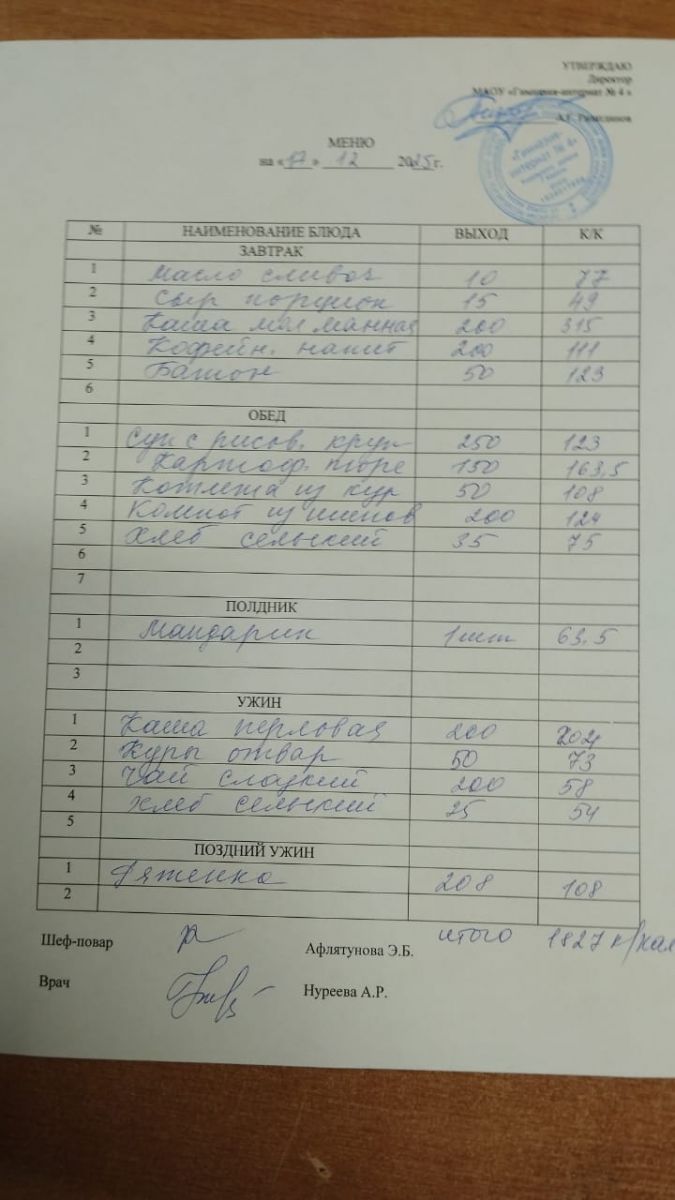 УТВЕРЖДАЮ
Директор
МАОУ «Гимназия-интернат № 4 »
«Гимназия-
интернат № 4»
МЕНЮ
на « 17 » 12 2025г.
№ НАИМЕНОВАНИЕ БЛЮДА ВЫХОД К/К
ЗАВТРАК
1 Масло сливоч 10 77
2 Сыр порцион 15 49
3 Каша мол манная 200 315
4 Кофейн. напит 200 111
5 Батон 50 123
6
ОБЕД
1 Суп с рисов. круп 250 123
2 Картоф. пюре 150 163,5
3 Котлета из кур 50 108
4 Компот из шипов 200 124
5 Хлеб сельский 35 75
6
7
ПОЛДНИК
1 Мандарин 1шт 63,5
2
3
УЖИН
1 Каша перловая 200 202
2 Куры отвар 50 73
3 Чай сладкий 200 58
4 Хлеб сельский 25 54
5
ПОЗДНИЙ УЖИН
1 Ряженка 208 108
2
итого 1827 к/кал
Шеф-повар Афлятунова Э.Б.
Врач Нуреева А.Р.